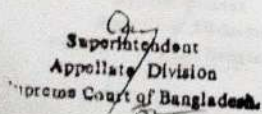 Superintendent
Appellate Division
Supreme Court of Bangladesh.